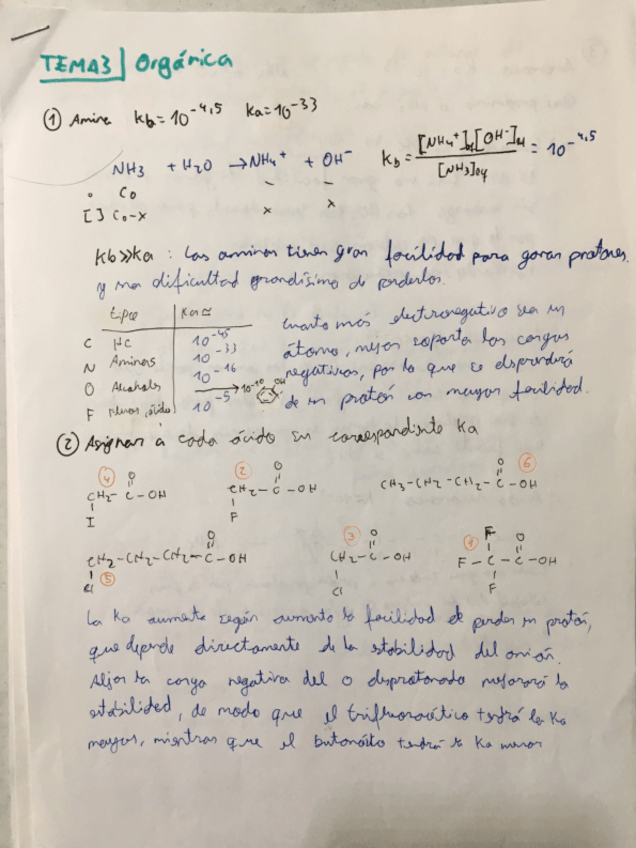 TEMA3 | Orgánica
① Amina Kb=10^-4,5 Ka=10^-33
NH3 + H2O → NH4+ + OH-
Kb = [NH4+]eq[OH-]eq / [NH3]eq = 10^-4,5
o Co - -
[ ] Co-x x x
Kb>>Ka : Las aminas tienen gran facilidad para ganar protones
y una dificultad grandísima de perderlos.
tipo Ka≈
C HC 10^-45
N Aminas 10^-33
O Alcoholes 10^-16 → 10^-10 OH
F ácido 10^-5
Cuanto más electronegativo sea un
átomo, mejor soporta las cargas
negativas, por lo que se desprenderá
de un protón con mayor facilidad.
② Asignar a cada ácido su correspondiente Ka
④ CH2-C-OH O I
② CH2-C-OH O F
⑥ CH3-CH2-CH2-C-OH O
⑤ CH2-CH2-CH2-C-OH O Cl
③ CH2-C-OH O Cl
① F-C-C-OH F O F
La Ka aumenta según aumenta la facilidad de perder un protón,
que depende directamente de la estabilidad del anión.
Alejar la carga negativa del O desprotonado mejorará la
estabilidad, de modo que el trifluoroacético tendrá la Ka
mayor, mientras que el butanoico tendrá la Ka menor